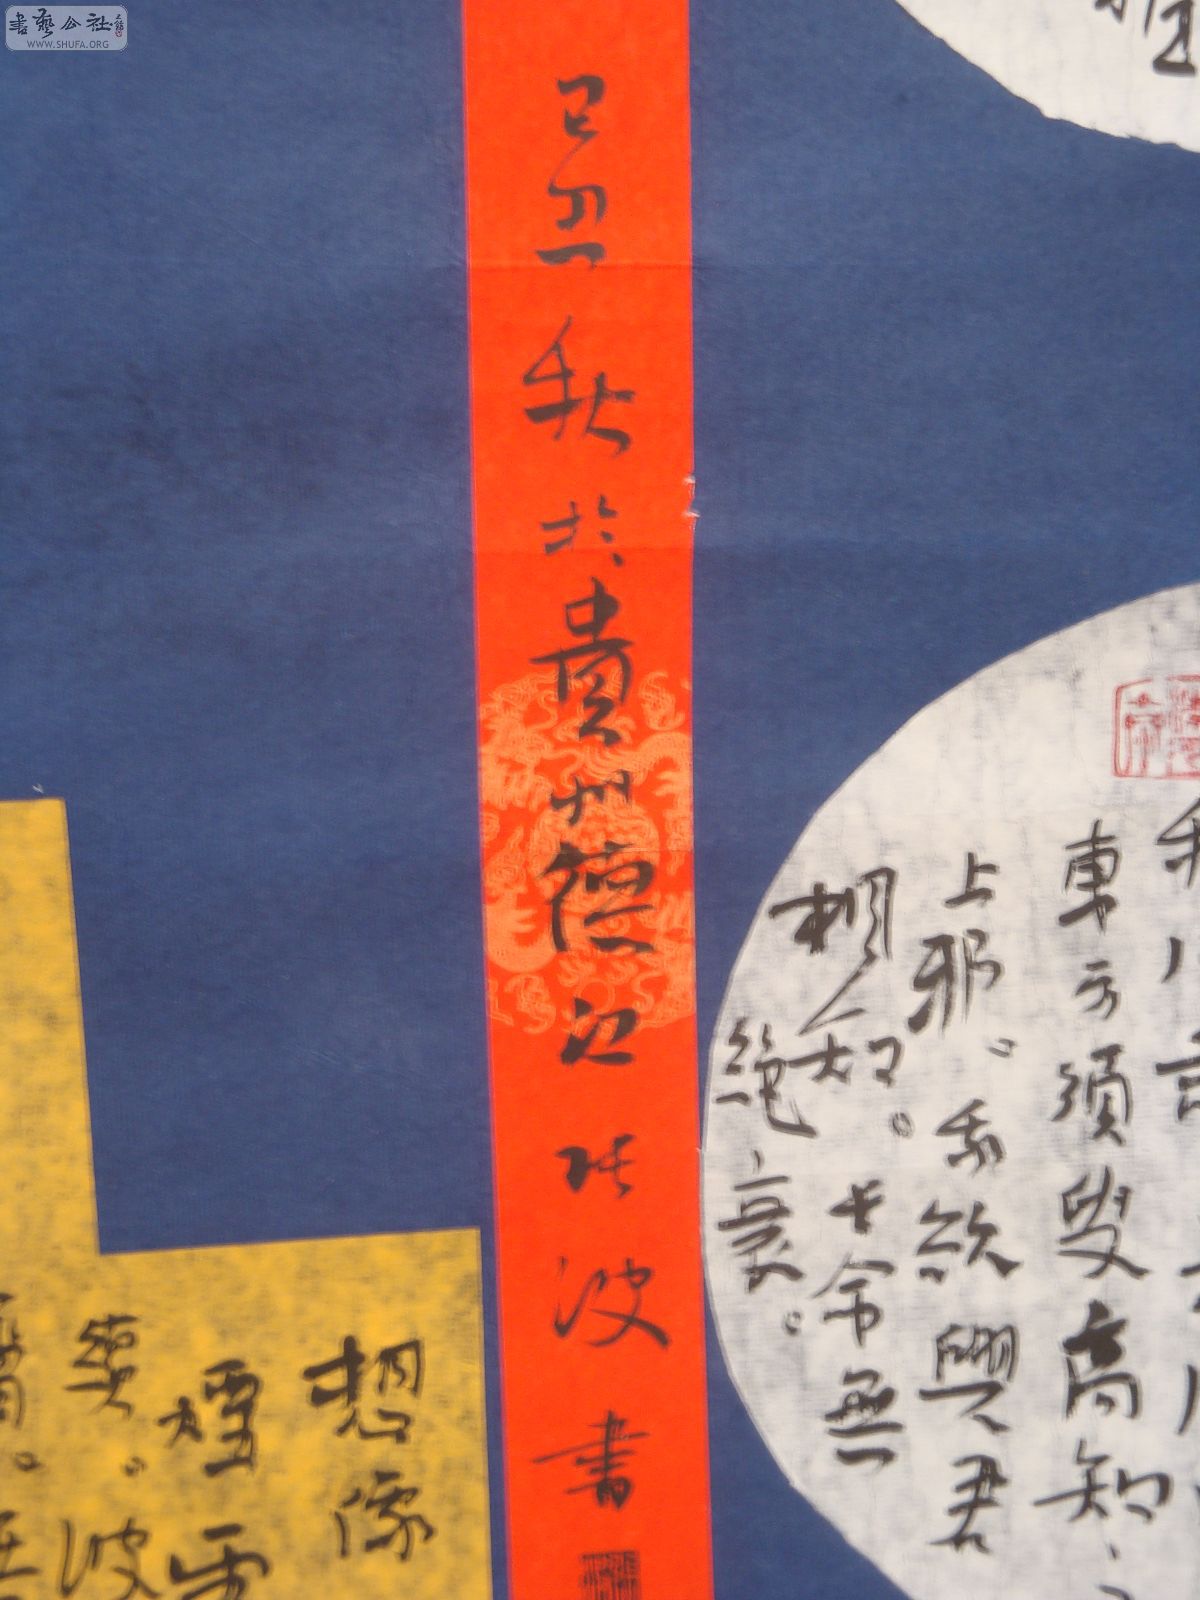 書藝公社
WWW.SHUFA.ORG
己丑秋於貴州德江张波書
東方須臾高知之
上邪。我欲與君
相知。長命無
絕衰。
想像
煙
續。波